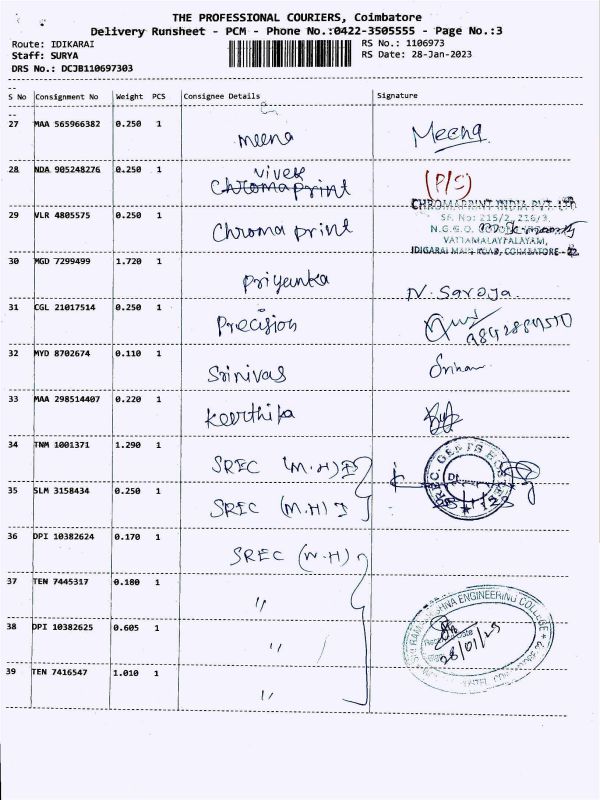 THE PROFESSIONAL COURIERS, Coimbatore
Delivery Runsheet - PCM - Phone No.:0422-3505555 - Page No.:3
Route: IDIKARAI
RS No.: 1106973
Staff: SURYA
RS Date: 28-Jan-2023
DRS No.: DCJB110697303
S No Consignment No Weight PCS Consignee Details Signature
27 MAA 565966382 0.250 1 Meena Meena
28 NDA 905248276 0.250 1 Vivek (P/S)
Chromaprint
CHROMAPRINT INDIA PVT. LTD
SF. No: 215/2, 216/3,
29 VLR 4805575 0.250 1 Chroma print N.G.G.O.
VATTAMALAYPALAYAM,
IDIGARAI MAIN ROAD, COIMBATORE - 22
30 MGD 7299499 1.720 1 Priyanka N. Saroja.
31 CGL 21017514 0.250 1 Precision
32 MYD 8702674 0.110 1 Srinivas
33 MAA 298514407 0.220 1 Keerthika
34 TNM 1001371 1.290 1 SREC (M.H) I
SREC. GENTS HOSTEL
35 SLM 3158434 0.250 1 SREC (M.H) I
36 DPI 10382624 0.170 1 SREC (W.H)
37 TEN 7445317 0.180 1 "
38 DPI 10382625 0.605 1 "
SRI RAMAKRISHNA ENGINEERING COLLEGE
28/01/23
39 TEN 7416547 1.010 1 "